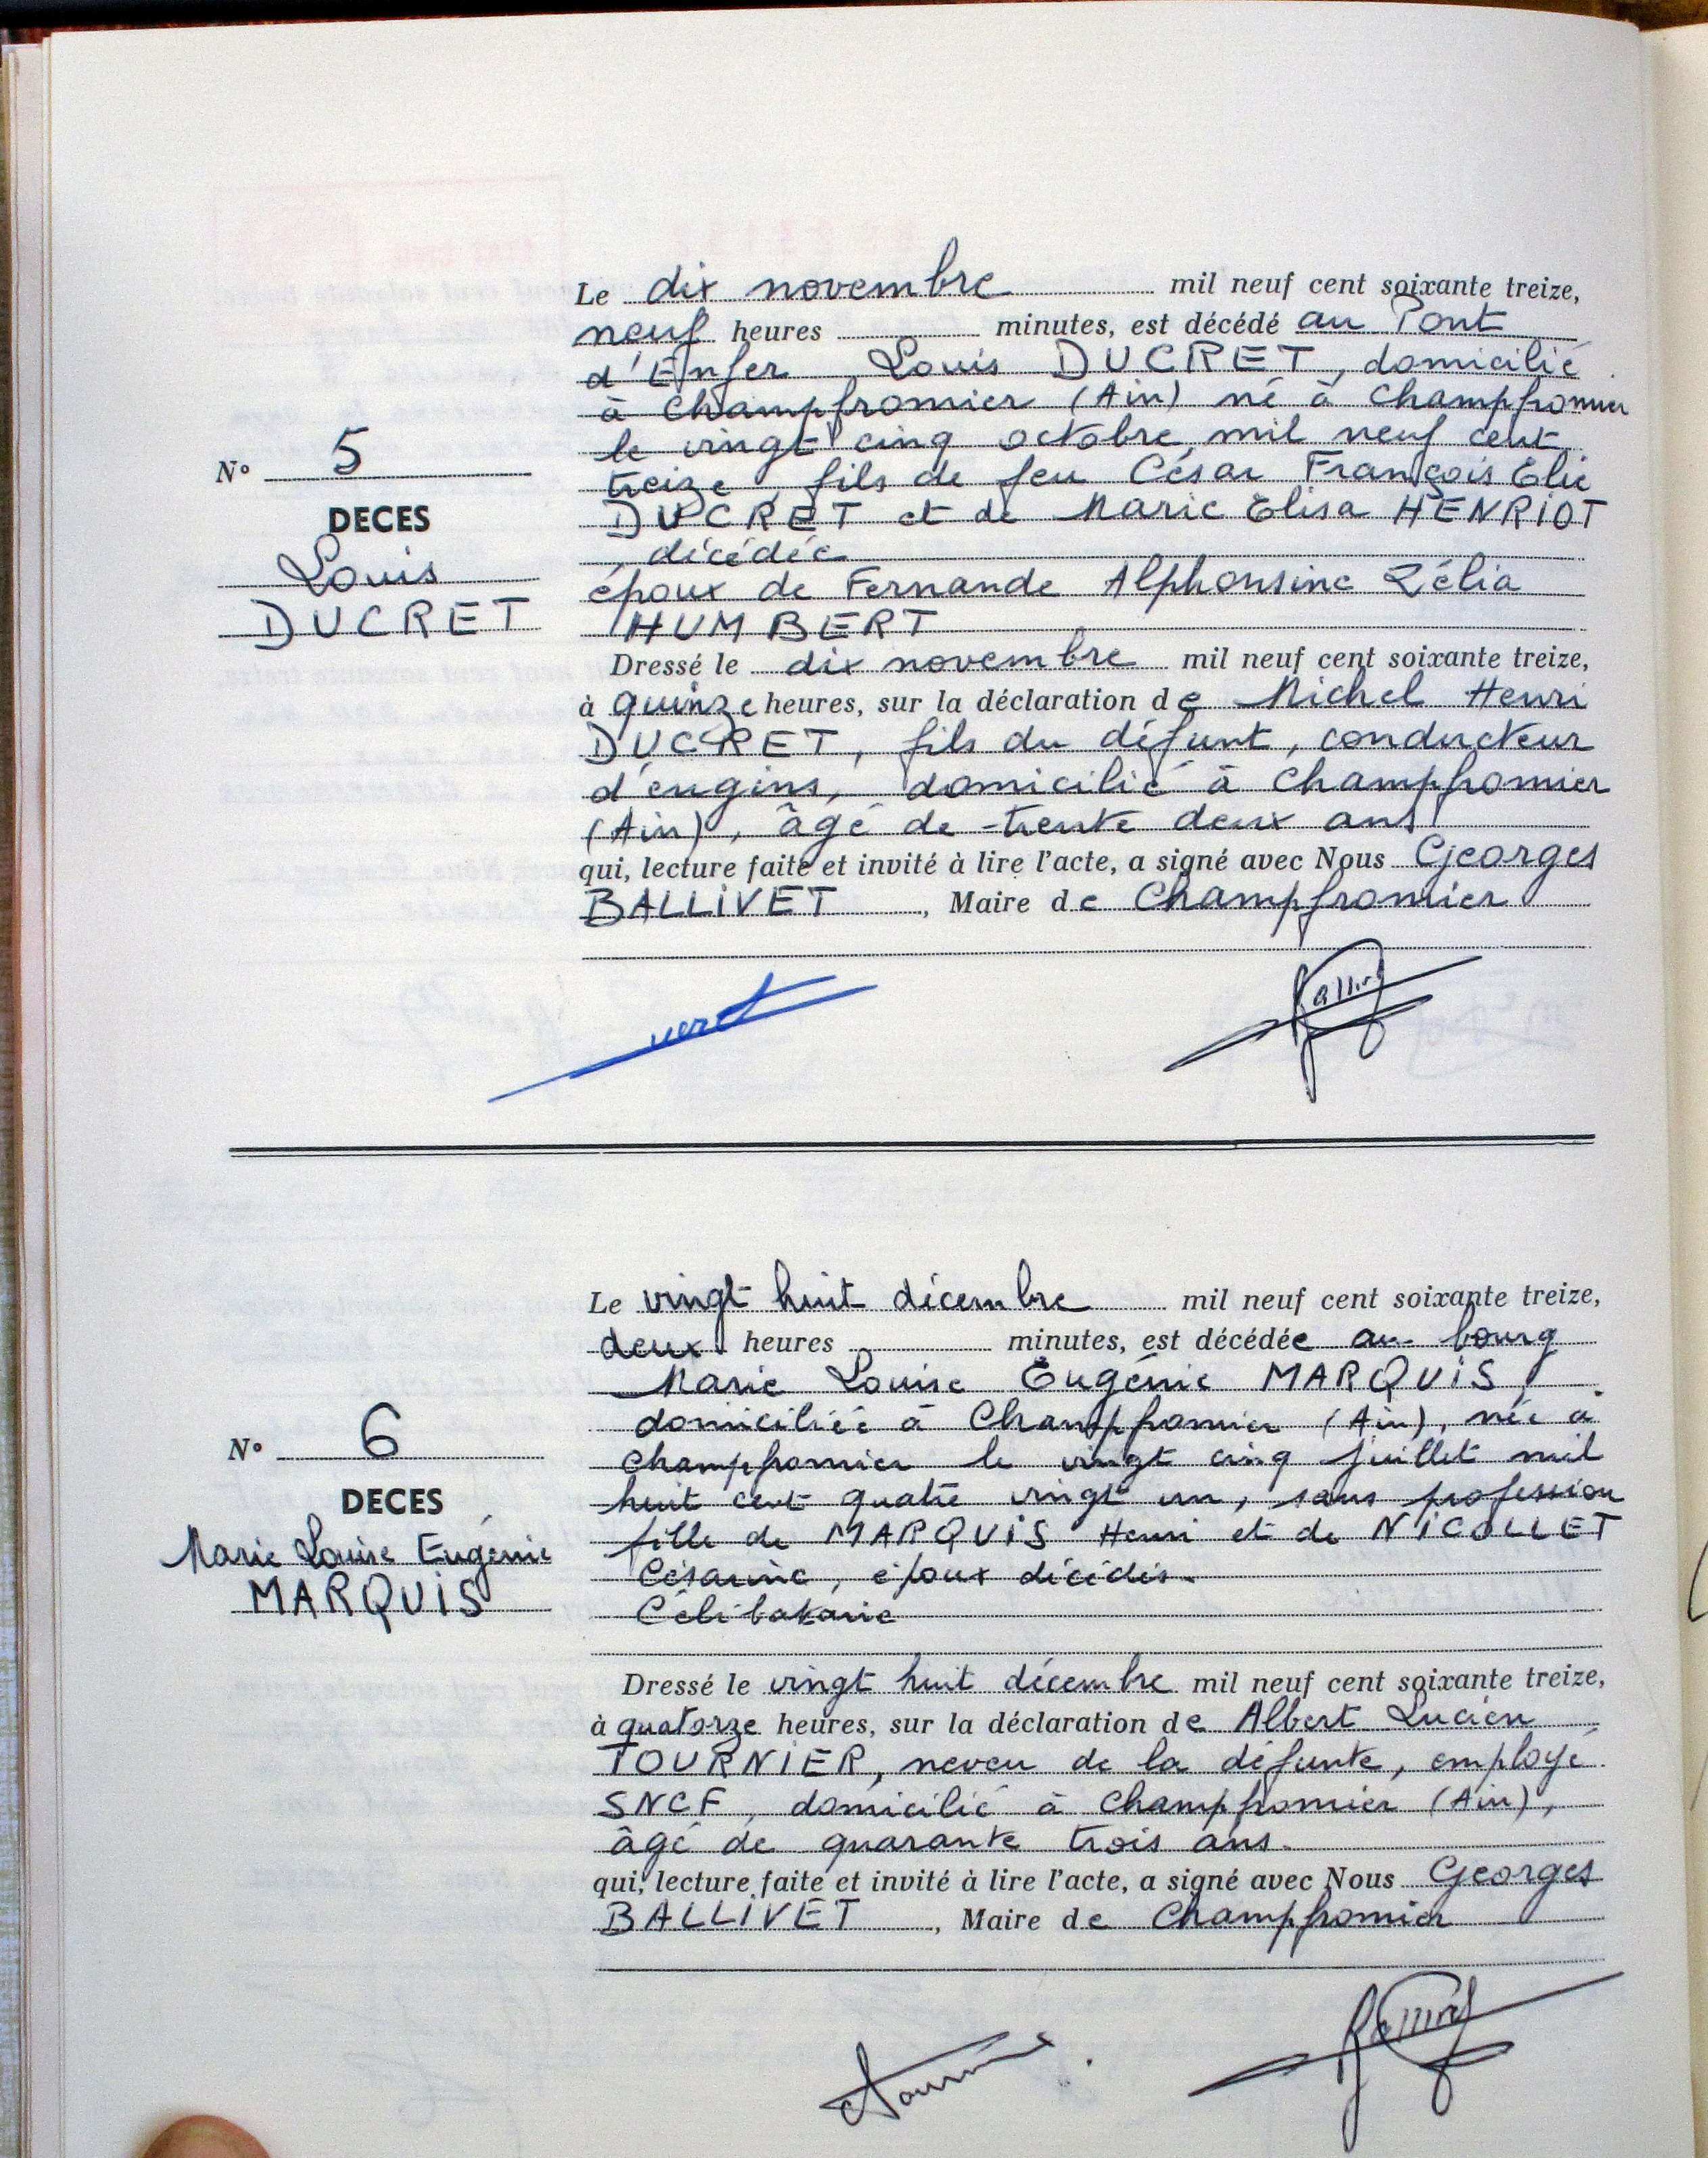 Le dix novembre mil neuf cent soixante treize,
neuf heures minutes, est décédé au Pont
d'Enfer Louis DUCRET, domicilié
à Champfromier (Ain) né à Champfromier
le vingt cinq octobre mil neuf cent
treize, fils de feu César François Elie
DUCRET et de Marie Elisa HENRIOT
décédée
époux de Fernande Alphonsine Zélia
HUMBERT
N° 5
DECES
Louis
DUCRET
Dressé le dix novembre mil neuf cent soixante treize,
à quinze heures, sur la déclaration de Michel Henri
DUCRET, fils du défunt, conducteur
d'engins, domicilié à Champfromier
(Ain), âgé de trente deux ans
qui, lecture faite et invité à lire l'acte, a signé avec Nous Georges
BALLIVET, Maire de Champfromier
Le vingt huit décembre mil neuf cent soixante treize,
deux heures minutes, est décédée au bourg
Marie Louise Eugénie MARQUIS,
domiciliée à Champfromier (Ain), née à
Champfromier le vingt cinq juillet mil
huit cent quatre vingt un, sans profession
fille de MARQUIS Henri et de NICOLLET
Césarine, époux décédés.
Célibataire
N° 6
DECES
Marie Louise Eugénie
MARQUIS
Dressé le vingt huit décembre mil neuf cent soixante treize,
à quatorze heures, sur la déclaration de Albert Lucien
TOURNIER, neveu de la défunte, employé
SNCF, domicilié à Champfromier (Ain),
âgé de quarante trois ans.
qui, lecture faite et invité à lire l'acte, a signé avec Nous Georges
BALLIVET, Maire de Champfromier